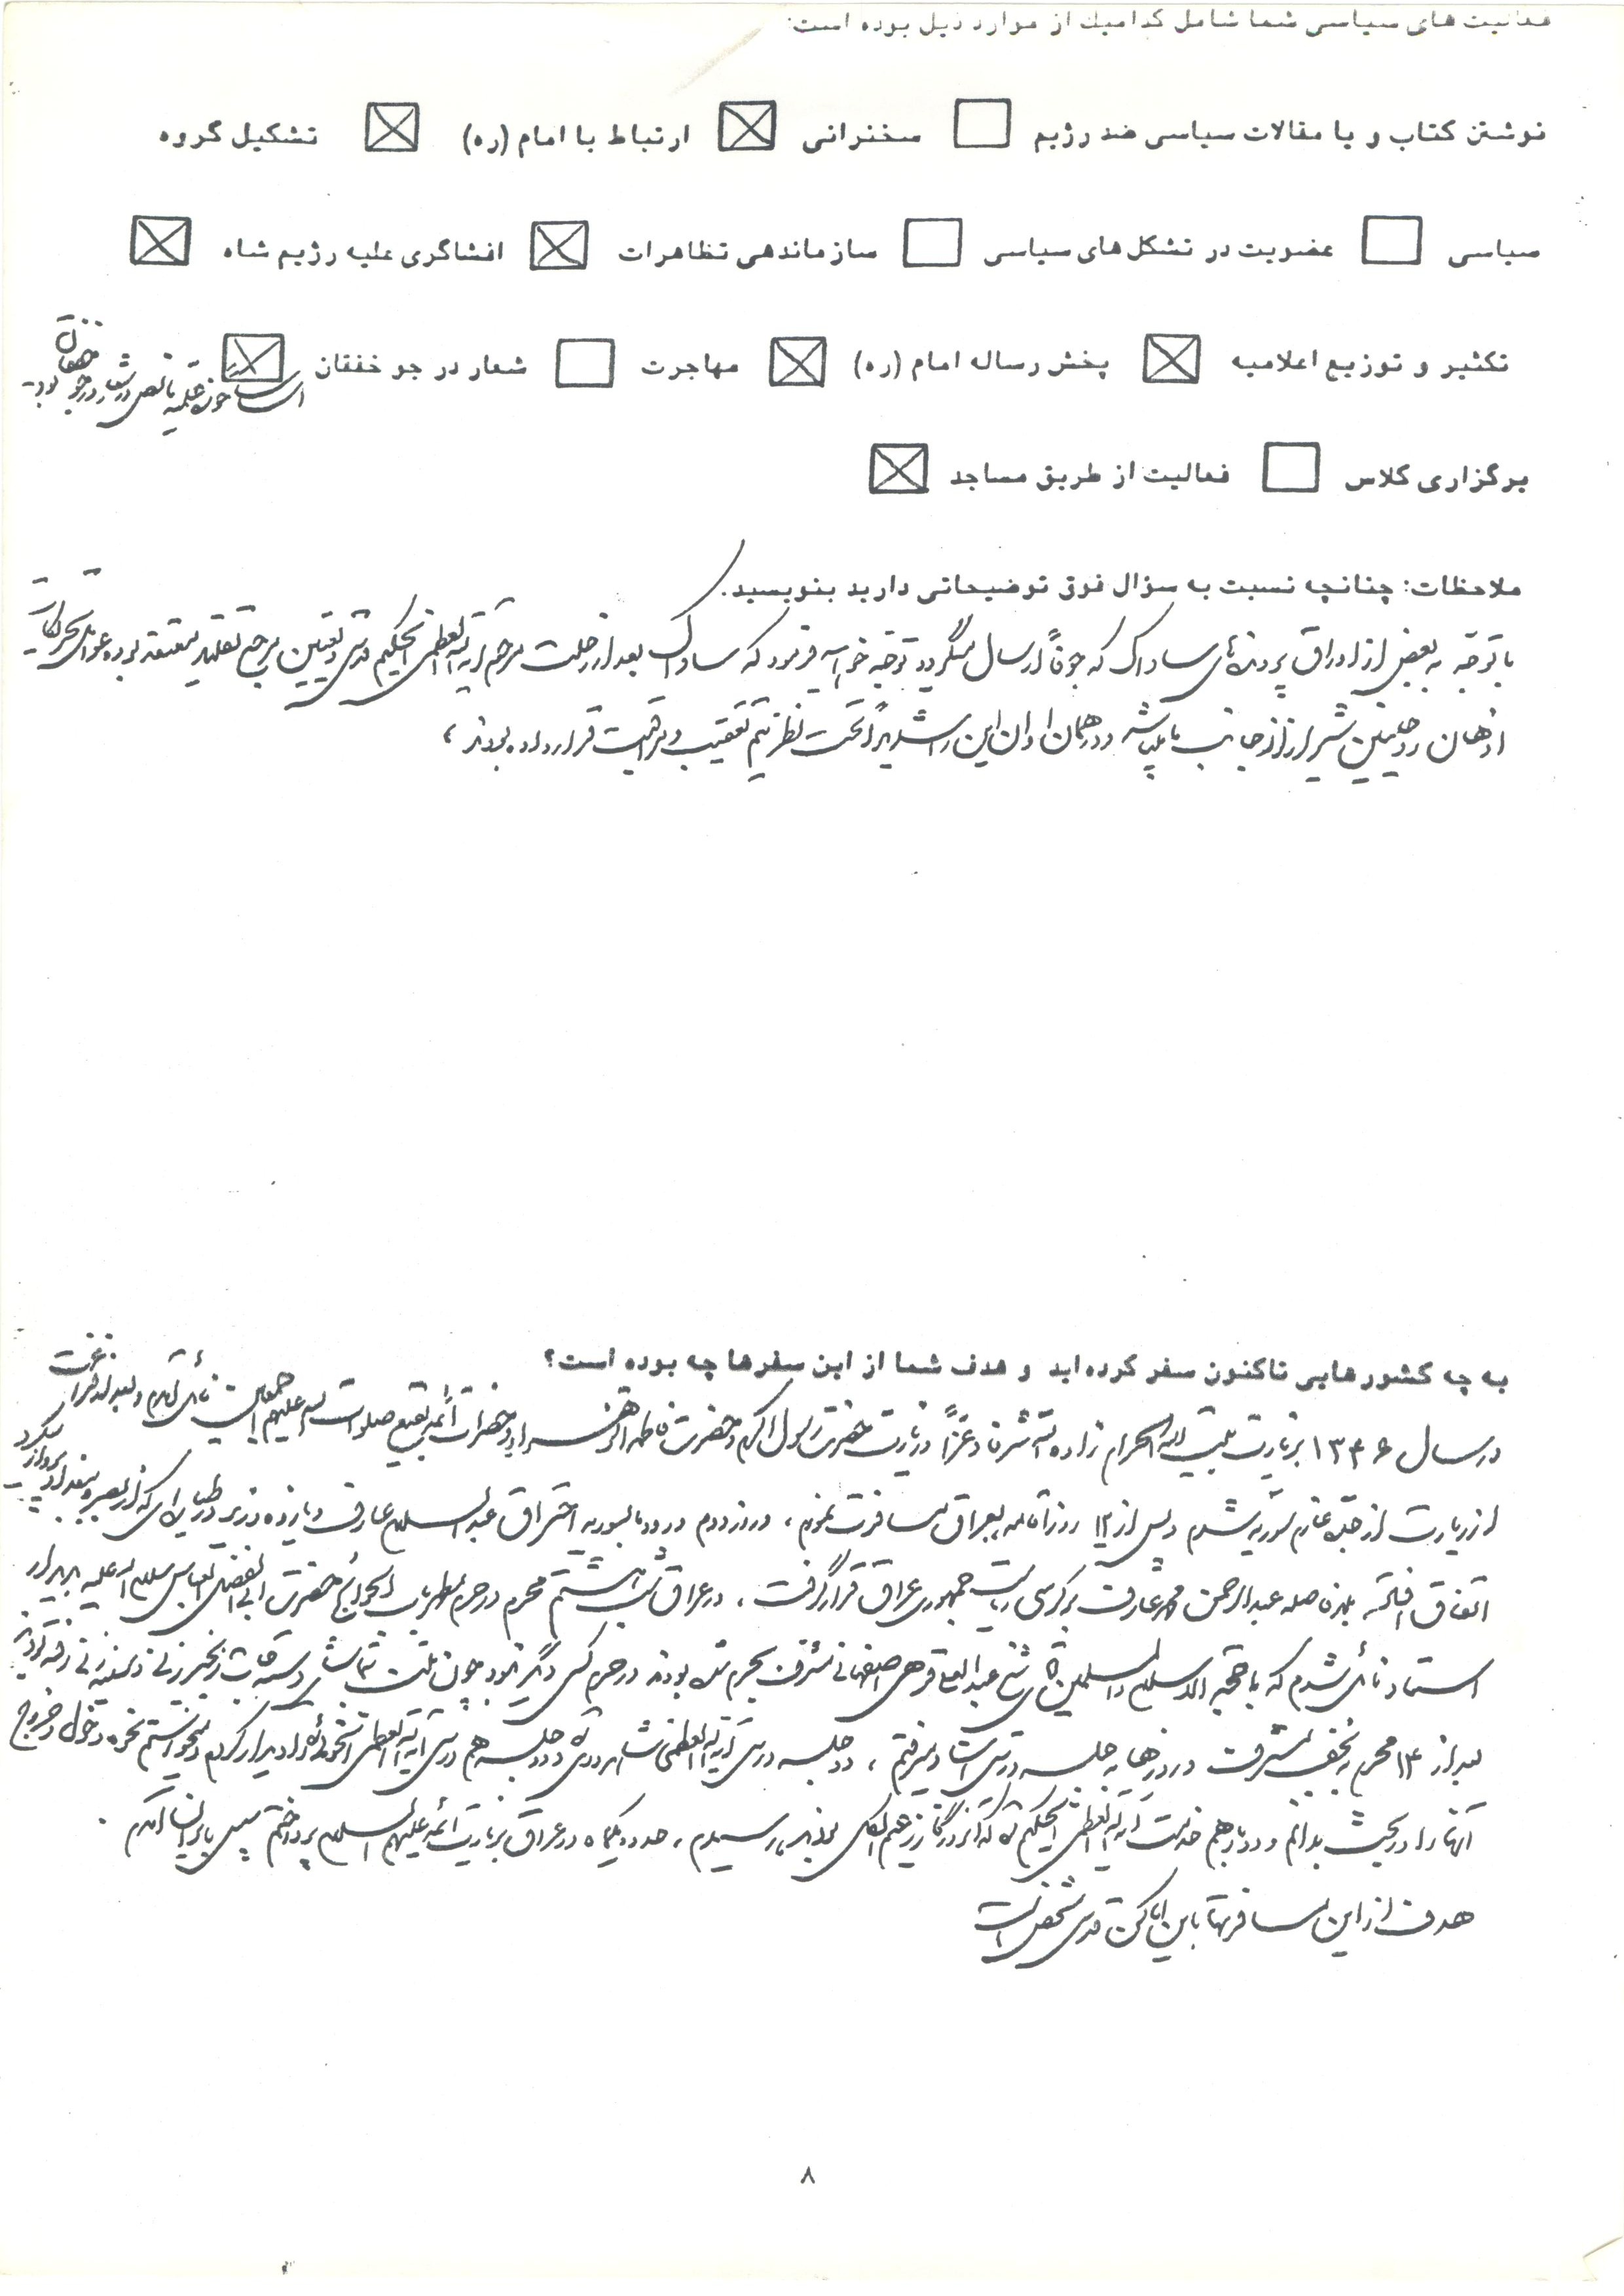 فعالیت های سیاسی شما شامل کدامیک از موارد ذیل بوده است:
نوشتن کتاب و یا مقالات سیاسی ضد رژیم ☐ سخنرانی ☒ ارتباط با امام (ره) ☒ تشکیل گروه
سیاسی ☐ عضویت در تشکل‌های سیاسی ☐ سازماندهی تظاهرات ☒ افشاگری علیه رژیم شاه ☒
تکثیر و توزیع اعلامیه ☒ پخش رساله امام (ره) ☒ مهاجرت ☐ شعار در جو خفقان ☒
اساساً حوزه علمیه در شعار در جو خفقان بود
برگزاری کلاس ☐ فعالیت از طریق مساجد ☒
ملاحظات: چنانچه نسبت به سؤال فوق توضیحاتی دارید بنویسید.
با توجه به بعضی از اوراق پرونده‌های ساواک که جوفاً ارسال میگردد توجه خواهید فرمود که ساواک بعد از رحلت مرحوم آیة الله العظمی الحکیم قدس تعیین مرجع تقلید معتقد بوده
اذهان روحانیین شیراز از جانب ما میباشد و در همان اوان این را شدیداً تحت نظر تیم تعقیب و مراقبت قرار داده بودند،
به چه کشورهایی تاکنون سفر کرده‌اید و هدف شما از این سفرها چه بوده است؟
در سال ۱۳۴۶ بزیارت بیت الله الحرام زاده الله شرفاً و عزاً و زیارت حضرت رسول اکرم و حضرت فاطمه الزهراء و حضرات ائمه بقیع صلوات الله علیهم اجمعین نائل آمدم و بعد از فراغت
از زیارت از جده عازم سوریه شدم و پس از ۱۲ روز اقامه بعراق مسافرت نمودم، در روز دوم ورود ما بسوریه احتراق عبدالسلام عارف و یازده وزیر در طیاره‌ای که از بصره ببغداد پرواز میکرد
اتفاق افتاد بلافاصله عبدالرحمن محمد عارف بر کرسی ریاست جمهوری عراق قرار گرفت، در عراق شب هشتم محرم در حرم مطهر باب الحوائج حضرت ابی الفضل العباس سلام الله علیه بدیدار
استاد نائل شدم که با حجة الاسلام والمسلمین آقای شیخ عبدالله اصفهانی مشرف بحرم شده بودند در حرم کسی دیگر نبود چون ملت تماشای دستجات زنجیرزنی و سینه‌زنی رفته بودند
بعد از ۱۳ محرم به نجف مشرف و روزها به جلسه درس استاد میرفتم، دو جلسه درس آیة الله العظمی شاهرودی و دو جلسه هم درس آیة الله العظمی الخوئی را دیدار کردم و میخواستم نحوه دخول و خروج
آنها را در بحث بدانم و دو بار هم خدمت آیة الله العظمی الحکیم که آنروزگار زعیم الکل بودند رسیدم، حدود یکماه در عراق بزیارت ائمه علیهم السلام پرداختم سپس بایران آمدم.
هدف از این مسافرتها باین اماکن قدس مشخص است
۸